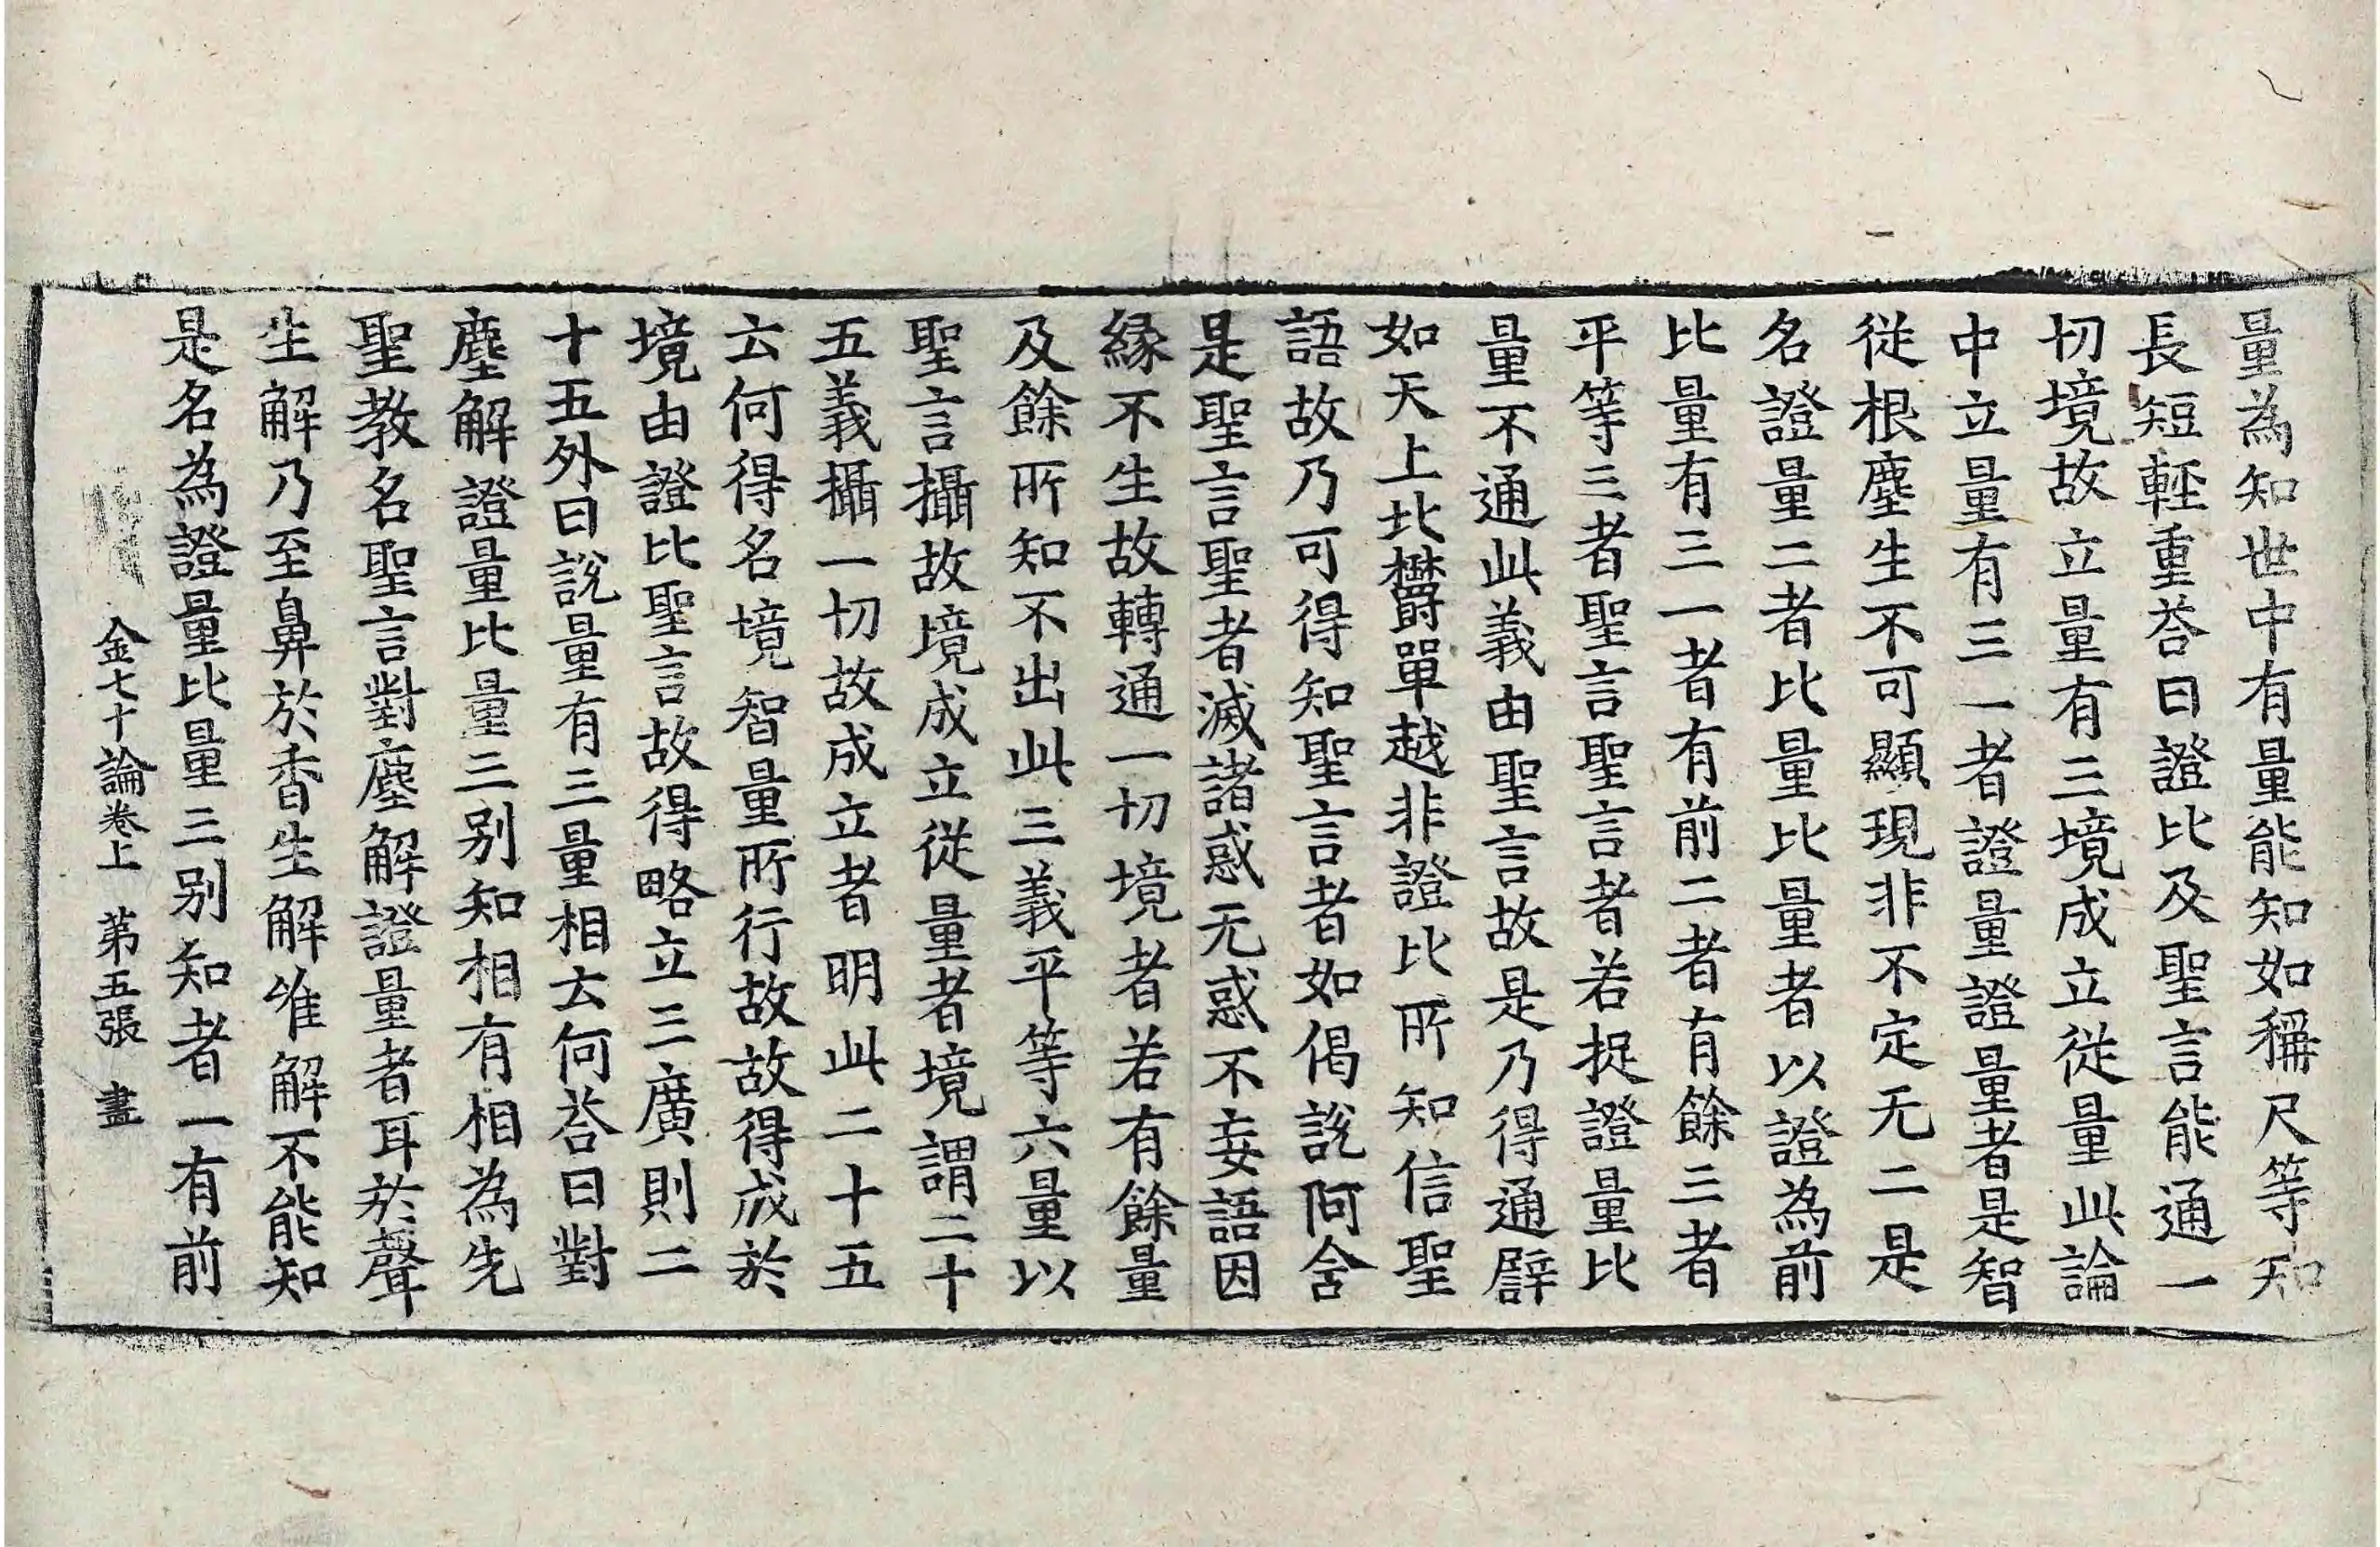 量為知世中有量能知如稱尺等知
長短輕重荅曰證比及聖言能通一
切境故立量有三境成立從量此論
中立量有三一者證量證量者是智
從根塵生不可顯現非不定无二是
名證量二者比量比量者以證為前
比量有三一者有前二者有餘三者
平等三者聖言聖言者若捉證量比
量不通此義由聖言故是乃得通譬
如天上北欝單越非證比所知信聖
語故乃可得知聖言者如偈說阿含
是聖言聖者滅諸惑无惑不妄語因
縁不生故轉通一切境者若有餘量
及餘所知不出此三義平等六量以
聖言攝故境成立從量者境謂二十
五義攝一切故成立者明此二十五
云何得名境智量所行故故得成於
境由證比聖言故得略立三廣則二
十五外曰說量有三量相云何荅曰對
塵解證量比量三别知相有相為先
聖教名聖言對塵解證量者耳於聲
生解乃至鼻於香生解唯解不能知
是名為證量比量三别知者一有前
金七十論卷上 第五張 盡